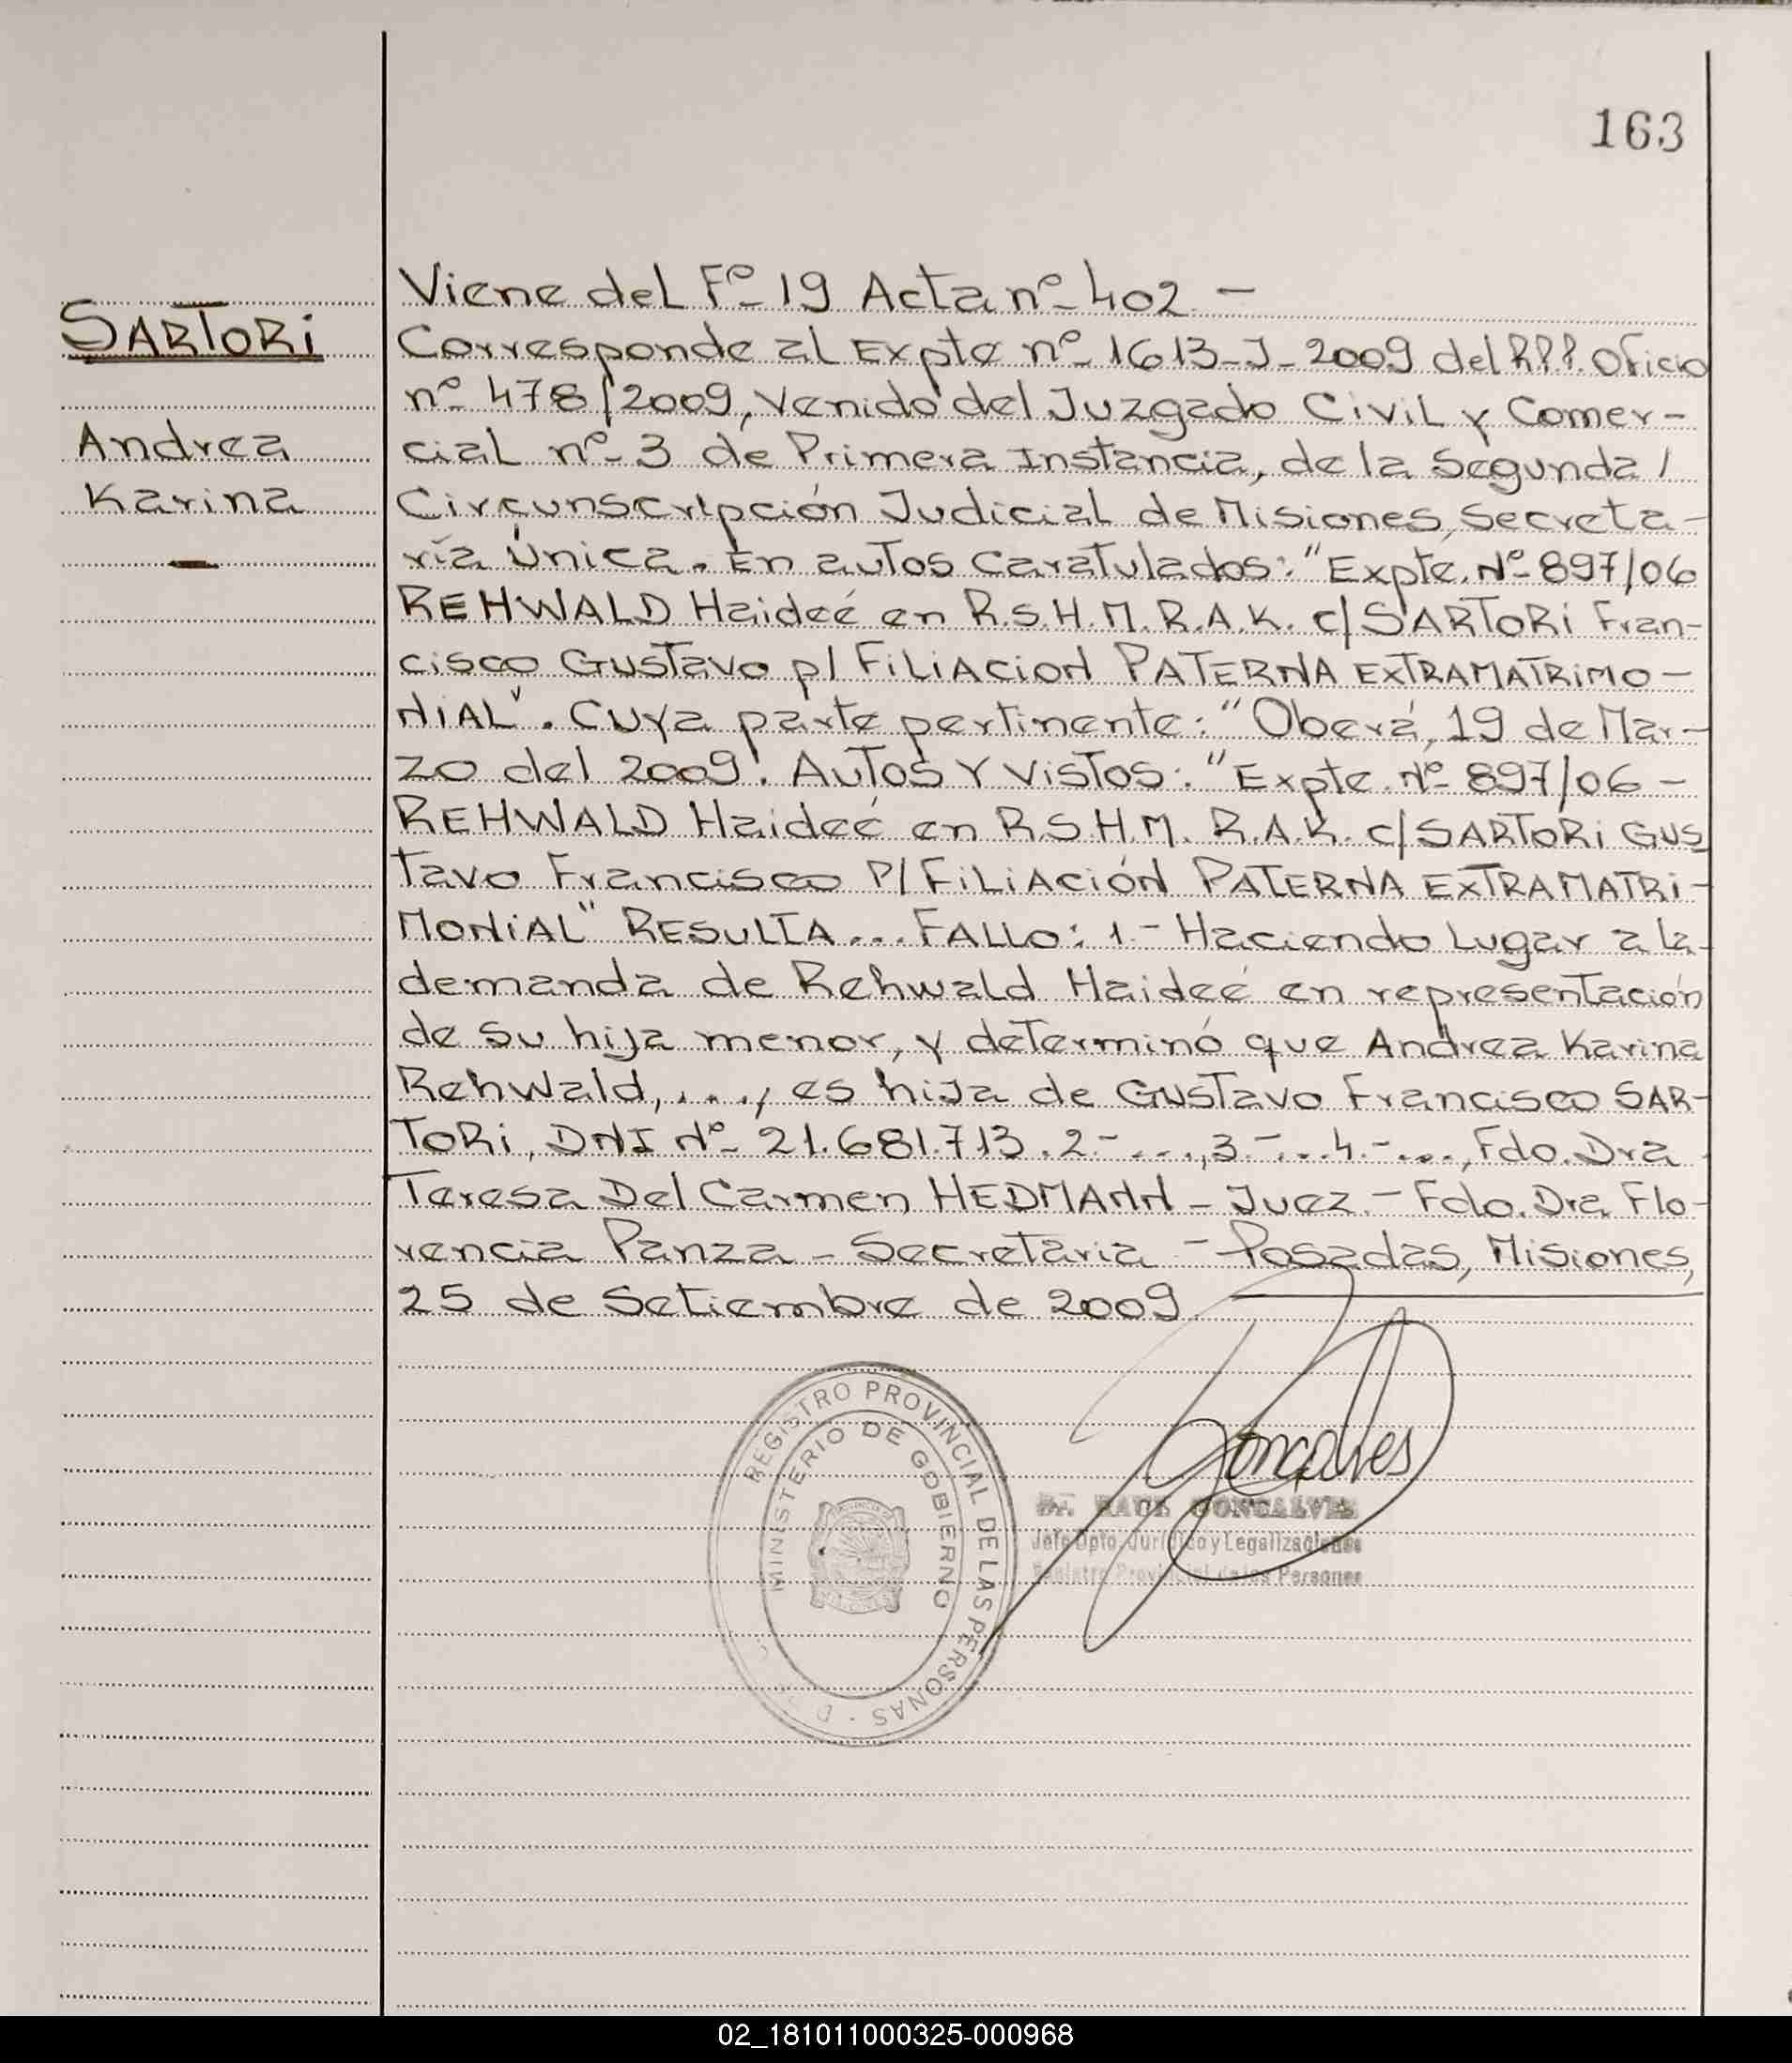 163
Viene del Fº 19 Acta nº 402.-
SARTORI
Corresponde al Expte nº 1613-J-2009 del R.P.P. Oficio
nº 478/2009, Venido del Juzgado Civil y Comer-
Andrea
cial nº 3 de Primera Instancia, de la Segunda /
Karina
Circunscripción Judicial de Misiones, Secreta-
ría Única. En autos Caratulados: "Expte. Nº 897/06
REHWALD Haideé en R.S.H.M. R.A.K. c/ SARTORI Fran-
cisco Gustavo p/ FILIACION PATERNA EXTRAMATRIMO-
NIAL". Cuya parte pertinente: "Oberá, 19 de Mar-
zo del 2009. Autos y Vistos: "Expte. Nº 897/06 -
REHWALD Haideé en R.S.H.M. R.A.K. c/ SARTORI GUS
tavo Francisco P/ FILIACIÓN PATERNA EXTRAMATRI-
MONIAL" RESULTA... FALLO: 1.- Haciendo Lugar a la
demanda de Rehwald Haideé en representación
de su hija menor, y determinó que Andrea Karina
Rehwald, ..., es hija de Gustavo Francisco SAR-
TORI, DNI Nº 21.681.713. 2.- ..., 3.- ... 4.- ..., Fdo. Dra
Teresa Del Carmen HEDMANN - Juez.- Fdo. Dra Flo-
rencia Panza - Secretaria - Posadas, Misiones,
25 de Setiembre de 2009
REGISTRO PROVINCIAL DE LAS PERSONAS
MINISTERIO DE GOBIERNO
Goncalves
Dr. RAUL GONCALVES
Jefe Dpto. Jurídico y Legalizaciones
Registro Provincial de las Personas
02_181011000325-000968